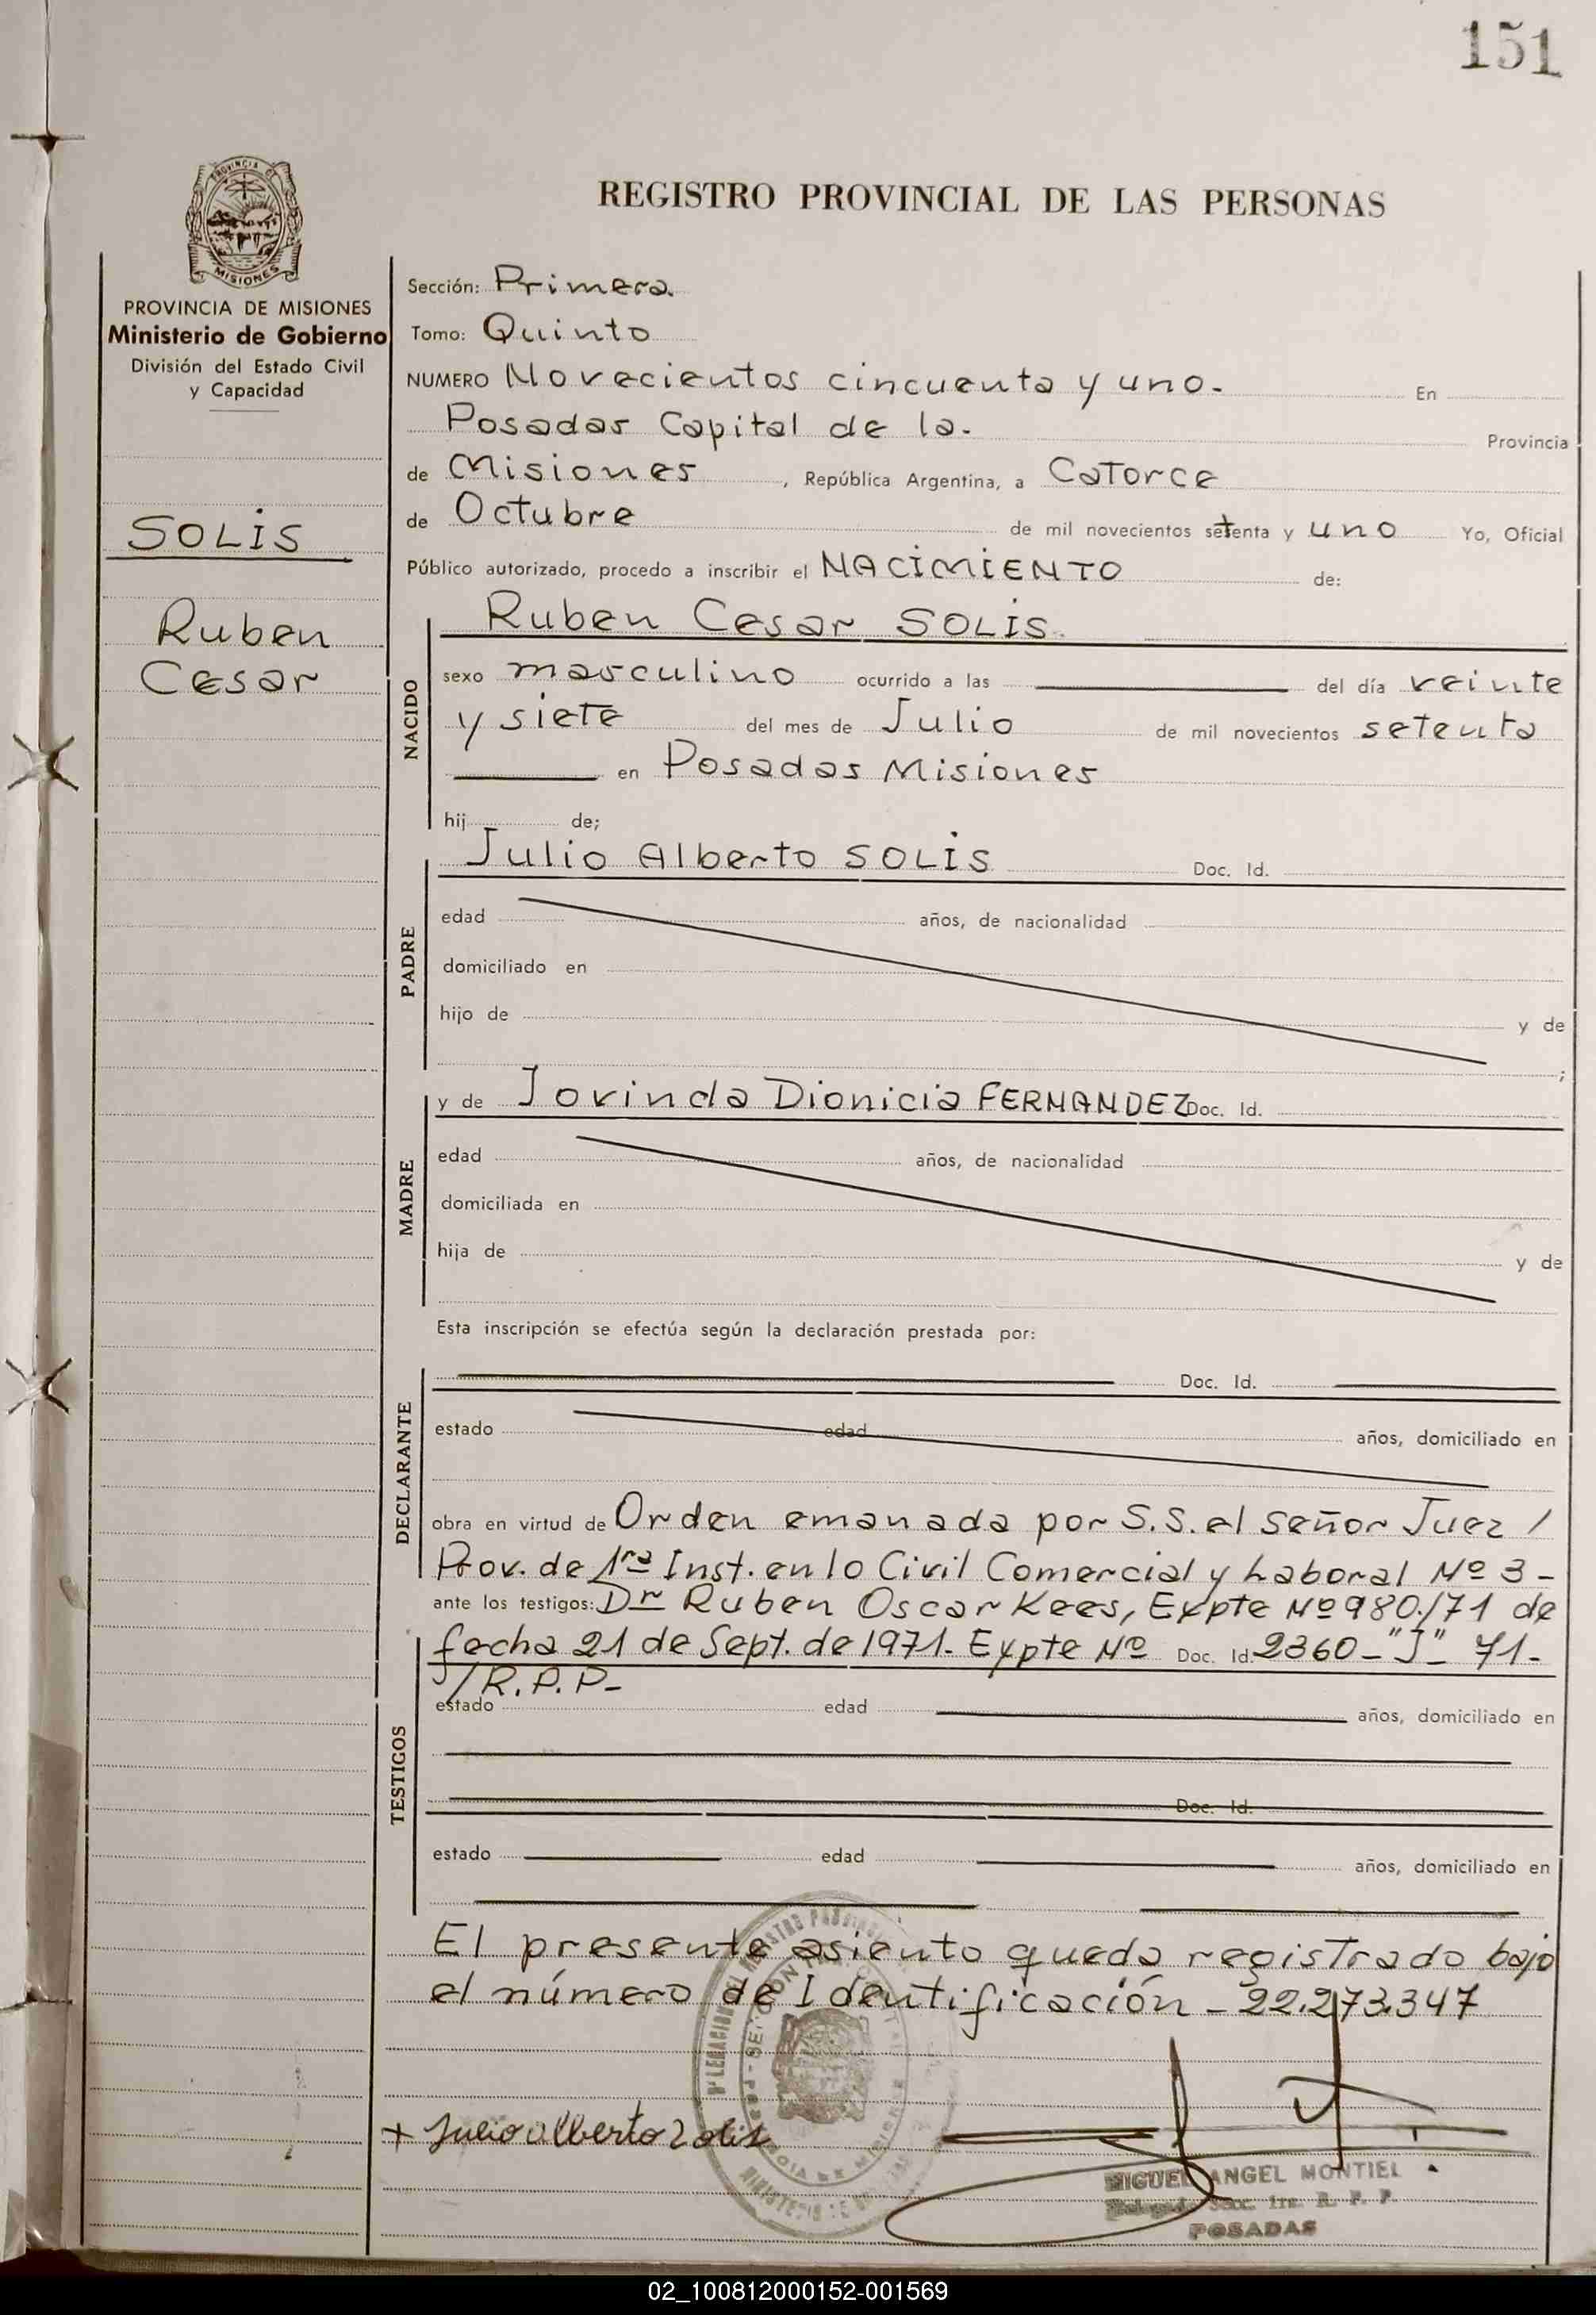 151
PROVINCIA DE
MISIONES
REGISTRO PROVINCIAL DE LAS PERSONAS
PROVINCIA DE MISIONES
Ministerio de Gobierno
División del Estado Civil
y Capacidad
SOLIS
Ruben
Cesar
Sección: Primera.
Tomo: Quinto
NUMERO Novecientos cincuenta y uno. En
Posadas Capital de la. Provincia
de Misiones, República Argentina, a Catorce
de Octubre de mil novecientos setenta y uno Yo, Oficial
Público autorizado, procedo a inscribir el NACIMIENTO de:
NACIDO
Ruben Cesar SOLIS.
sexo masculino ocurrido a las del día veinte
y siete del mes de Julio de mil novecientos setenta
en Posadas Misiones
hij de;
PADRE
Julio Alberto SOLIS Doc. Id.
edad años, de nacionalidad
domiciliado en
hijo de y de
;
MADRE
y de Jovinda Dionicia FERNANDEZ Doc. Id.
edad años, de nacionalidad
domiciliada en
hija de y de
Esta inscripción se efectúa según la declaración prestada por:
DECLARANTE
Doc. Id.
estado edad años, domiciliado en
obra en virtud de Orden emanada por S.S. el Señor Juez /
Prov. de 1ra Inst. en lo Civil Comercial y Laboral Nº 3 -
ante los testigos: Dr Ruben Oscar Kees, Expte Nº 980./71 de
fecha 21 de Sept. de 1971. Expte Nº Doc. Id. 2360-"J"- 71-
/R.P.P-
TESTIGOS
estado edad años, domiciliado en
Doc. Id.
estado edad años, domiciliado en
El presente asiento queda registrado bajo
el número de Identificación - 22.273.347
+ Julio Alberto Solis
MIGUEL ANGEL MONTIEL
Secc. 1ra. R. P. P.
POSADAS
02_100812000152-001569